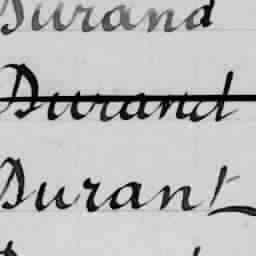 Durand
Durand
Durant